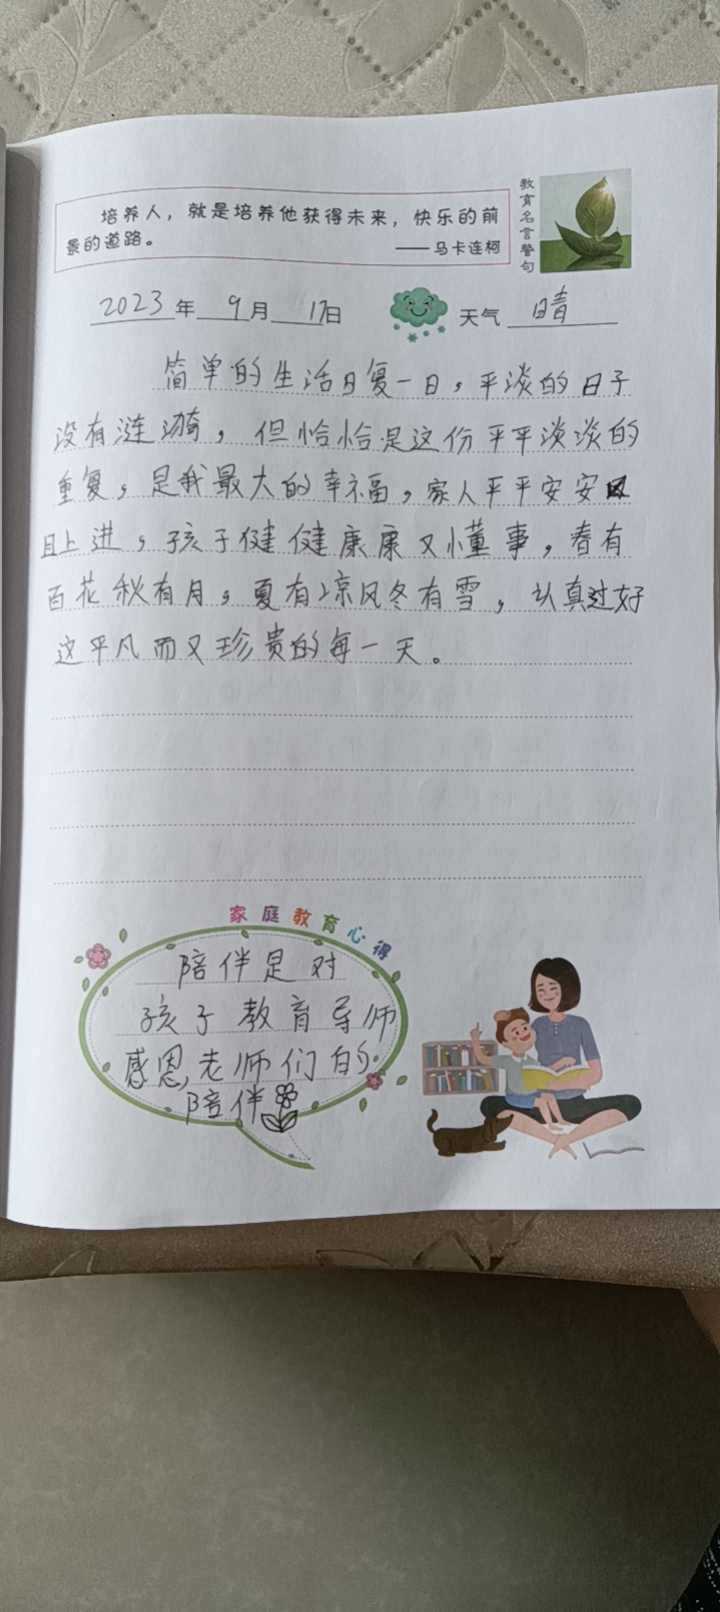 培养人，就是培养他获得未来，快乐的前
景的道路。
——马卡连柯
教育名言警句
2023年 9月 17日 天气 晴
简单的生活日复一日，平淡的日子
没有涟漪，但恰恰是这份平平淡淡的
重复，是我最大的幸福，家人平平安安
且上进，孩子健健康康又懂事，春有
百花秋有月，夏有凉风冬有雪，认真过好
这平凡而又珍贵的每一天。
家庭教育心得
陪伴是对
孩子教育导师
感恩,老师们的
陪伴